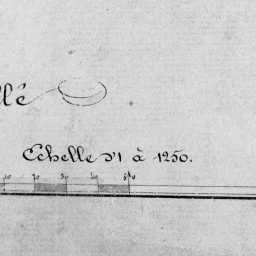 llé
Echelle d'1 à 1250.
10 20 30 40 50